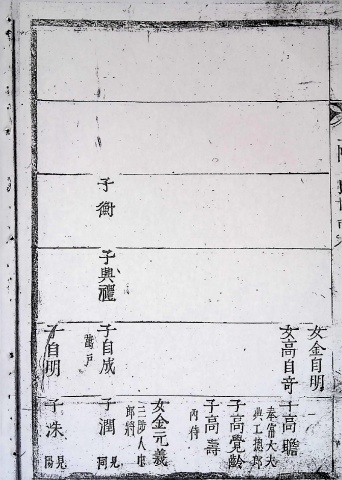 女金自明
女高自奇
子高瞻
奉常大夫
典工摠郎
子高覺齡
子高壽
內侍
子衡
子興禮
子自成
萬戶
女金元義
三
郎將
子潤
見
子自明
子洙
見
陽